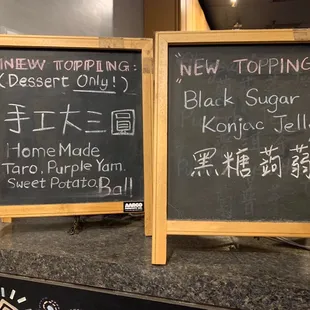 NEW TOPPING:
(Dessert Only!)
手工大三圓
Home Made
Taro. Purple Yam.
Sweet Potato. Ball
"NEW TOPPING
Black Sugar
Konjac Jell
黑糖蒟蒻